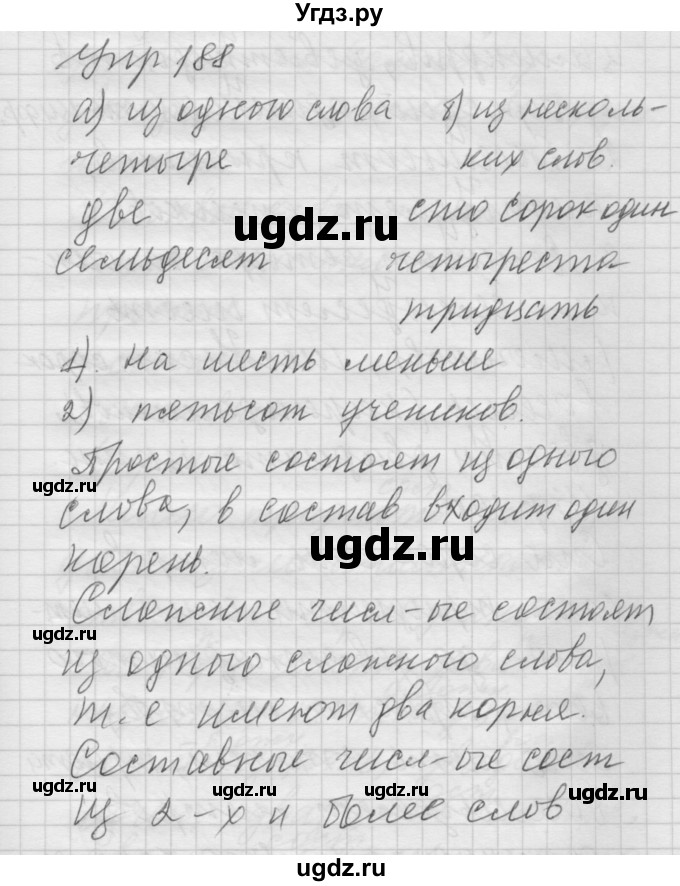 Угдз.ру
Упр 188
а) из одного слова б) из несколь-
четыре ких слов.
две сто сорок один
ugdz.ru
семьдесят четыреста
тридцать
1). на шесть меньше
2) пятьсот учеников.
Простые состоят из одного
ugdz.ru
слова, в состав входит один
ugdz.ru
корень.
Сложные числ-ые состоят
ugdz.ru
из одного сложного слова,
т.е имеют два корня.
Составные числ-ые сост
ugdz.ru
Из 2-х и более слов
ugdz.ru
ugdz.ru